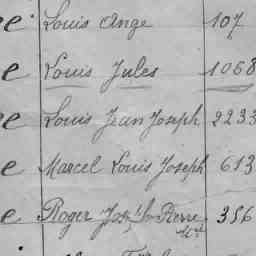 e Louis Ange 107
e Louis Jules 1068
e Louis Jean Joseph 2233
e Marcel Louis Joseph 613
e Roger Jos.h Pierre 356
M.el